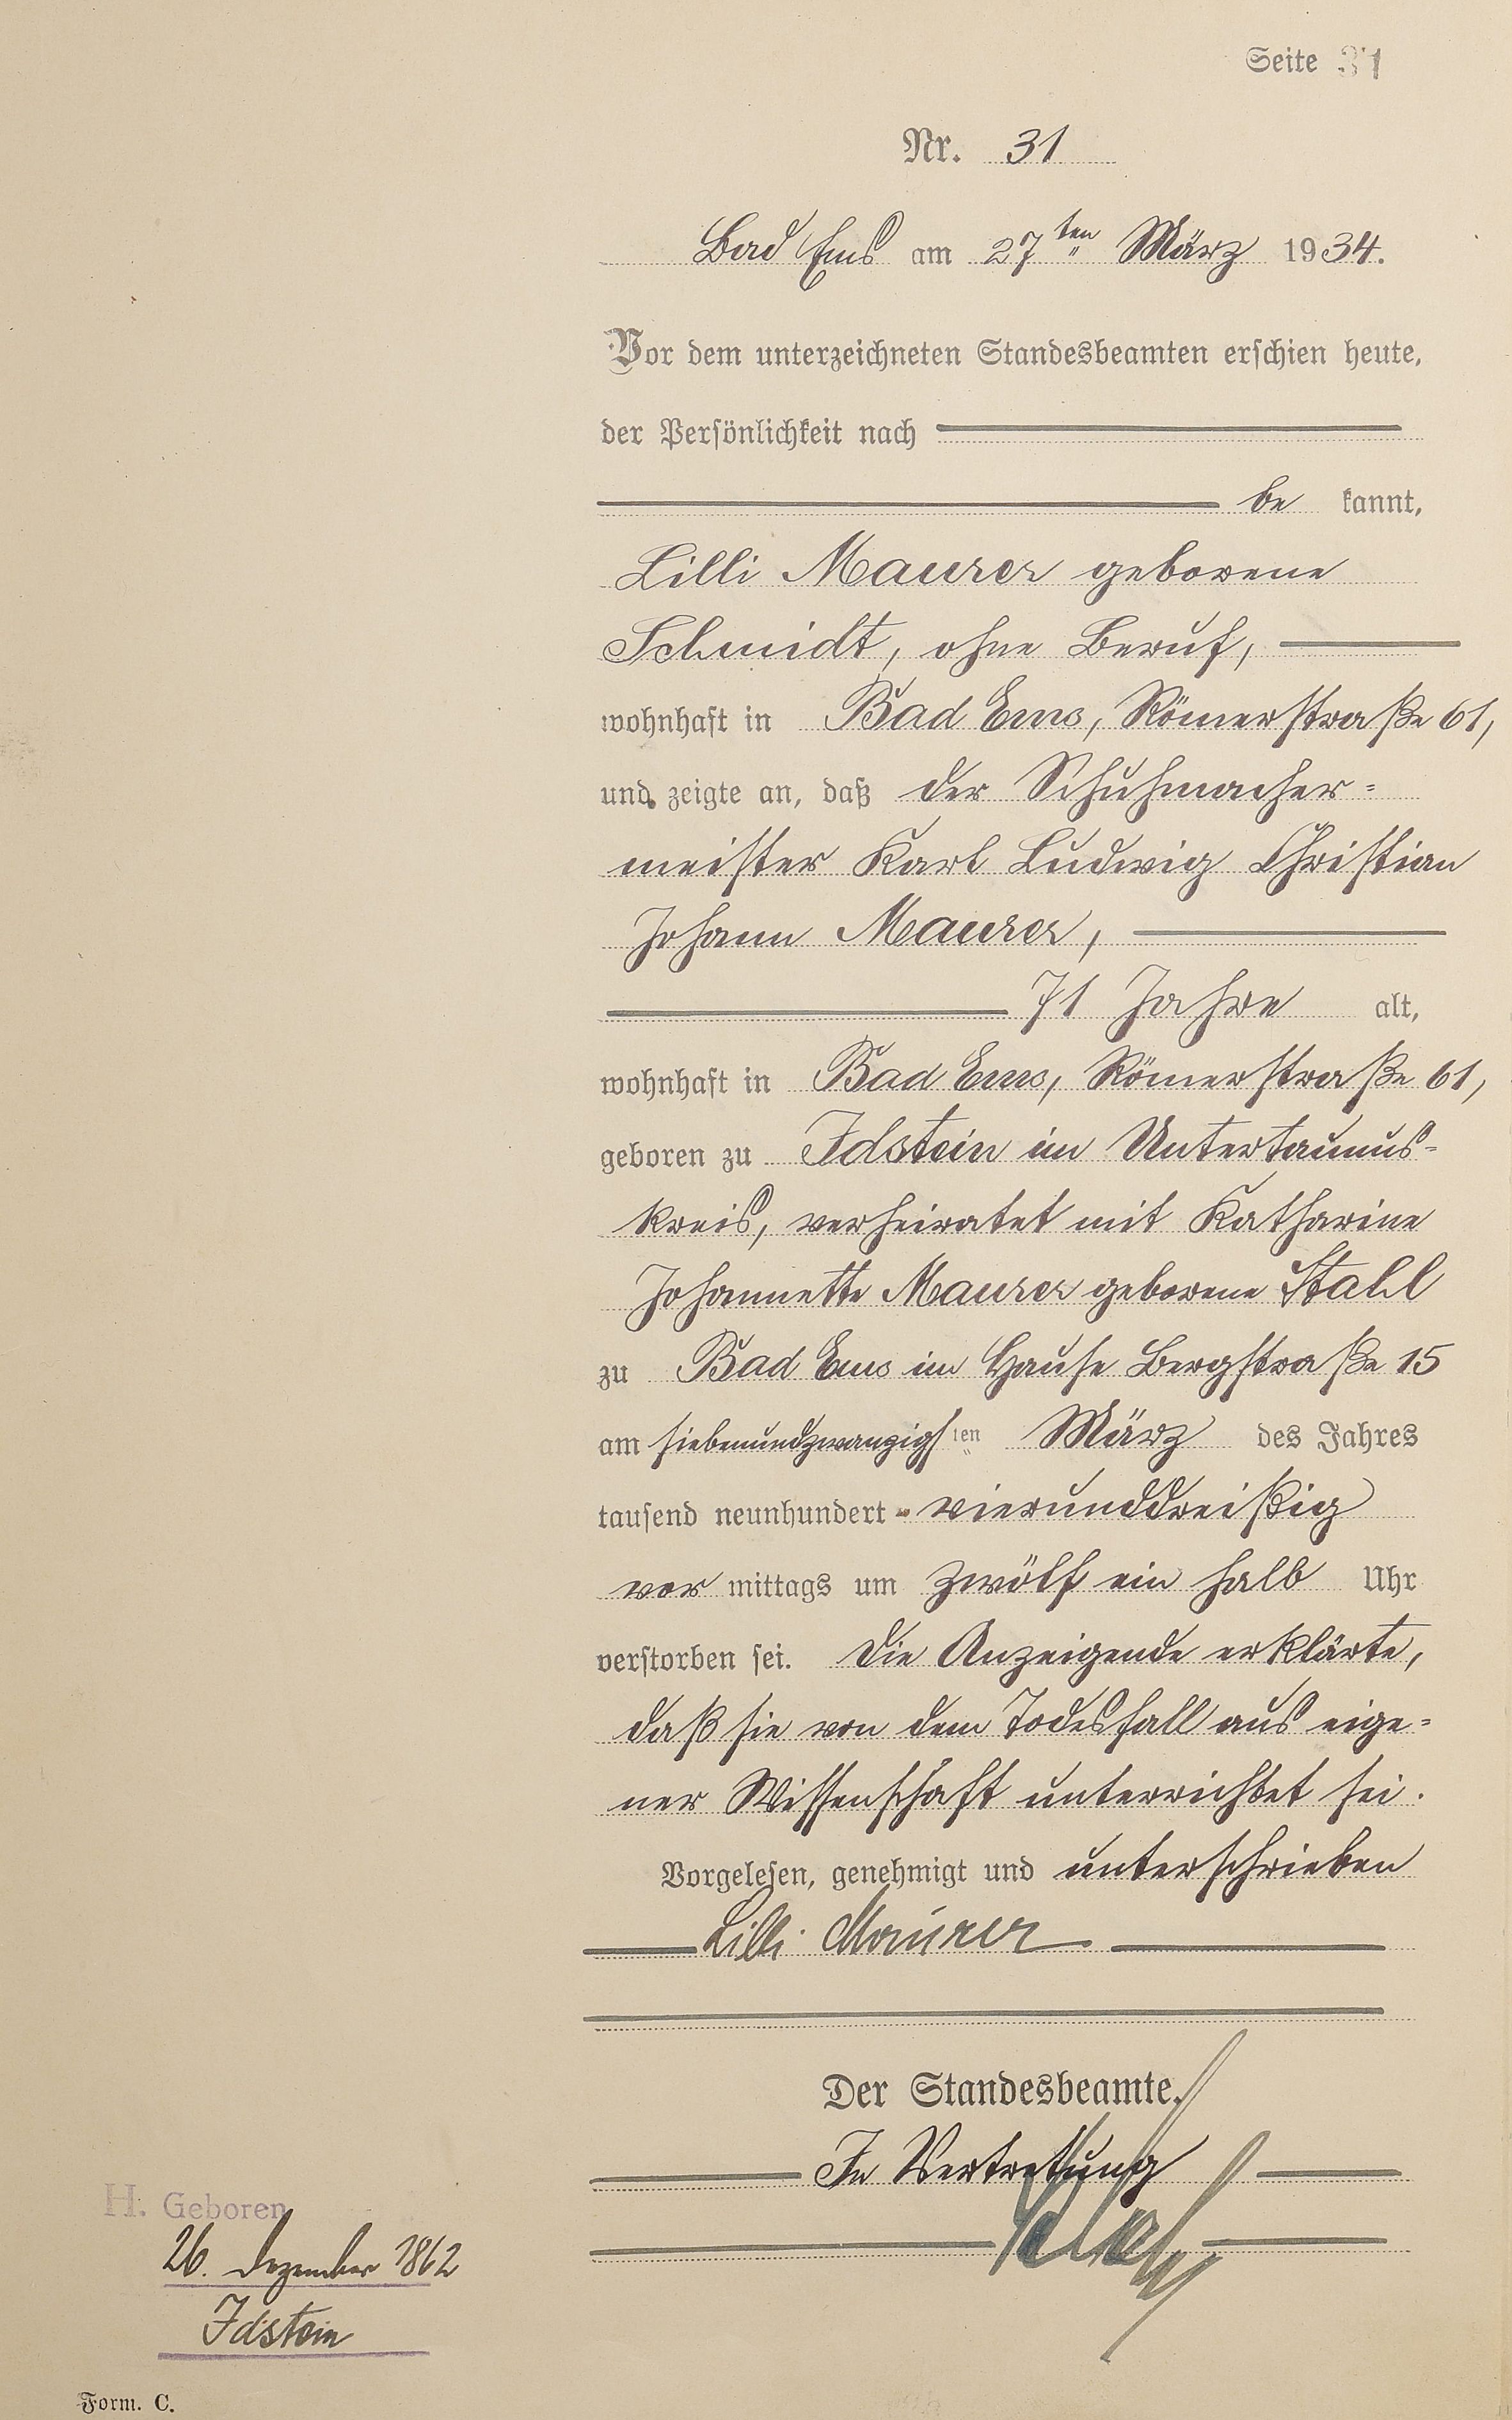 Seite 31
Nr. 31
Bad Ems am 27ten März 1934.
Vor dem unterzeichneten Standesbeamten erschien heute,
der Persönlichkeit nach
be kannt,
Lilli Maurer geborene
Schmidt, ohne Beruf,
wohnhaft in Bad Ems, Römerstraße 61,
und zeigte an, daß der Schuhmacher=
meister Karl Ludwig Christian
Johann Maurer,
71 Jahre alt,
wohnhaft in Bad Ems, Römerstraße 61,
geboren zu Idstein im Untertaunus=
kreis, verheiratet mit Katharine
Johannette Maurer geborene Stahl
zu Bad Ems im Hause Bergstraße 15
am siebenundzwanzigsten März des Jahres
tausend neunhundert vierunddreißig
vor mittags um zwölf ein halb Uhr
verstorben sei. Die Anzeigende erklärte,
daß sie von dem Todesfall aus eige=
ner Wissenschaft unterrichtet sei.
Vorgelesen, genehmigt und unterschrieben
Lilli Maurer
Der Standesbeamte.
In Vertretung
H. Geboren
26. Dezember 1862
Idstein
Form. C.